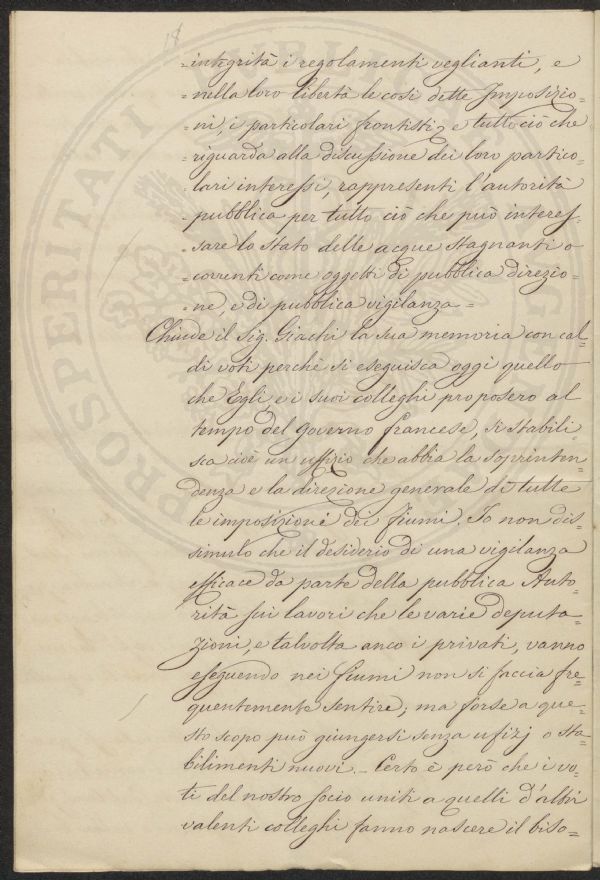 18
=integrità i regolamenti veglianti, e
=nella loro libertà le così dette Imposizio=
=ni, i particolari frontisti, e tuttociò che
=riguarda alla discussione dei loro partico=
=lari interessi, rappresenti l'autorità
=pubblica per tutto ciò che può interes=
=sare lo stato delle acque stagnanti o
=correnti come oggetti di pubblica direzio=
=ne, e di pubblica vigilanza=
Chiude il Sig. Giachi la sua memoria con cal=
di voti perchè si eseguisca oggi quello
che Egli, e i suoi colleghi proposero al
tempo del governo francese, si stabili
sca cioè un uffizio che abbia la soprinten=
denza e la direzione generale di tutte
le imposizioni dei fiumi. Io non dis=
simulo che il desiderio di una vigilanza
efficace da parte della pubblica Auto=
rità sui lavori che le varie deputa=
zioni, e talvolta anco i privati, vanno
eseguendo nei fiumi non si faccia fre=
quentemente sentire; ma forse a que=
sto scopo può giungersi senza ufizj o sta=
bilimenti nuovi. _ Certo è però che i vo=
ti del nostro socio uniti a quelli d'altri
valenti colleghi fanno nascere il biso=
PROSPERITATI PUBLICAE AUG